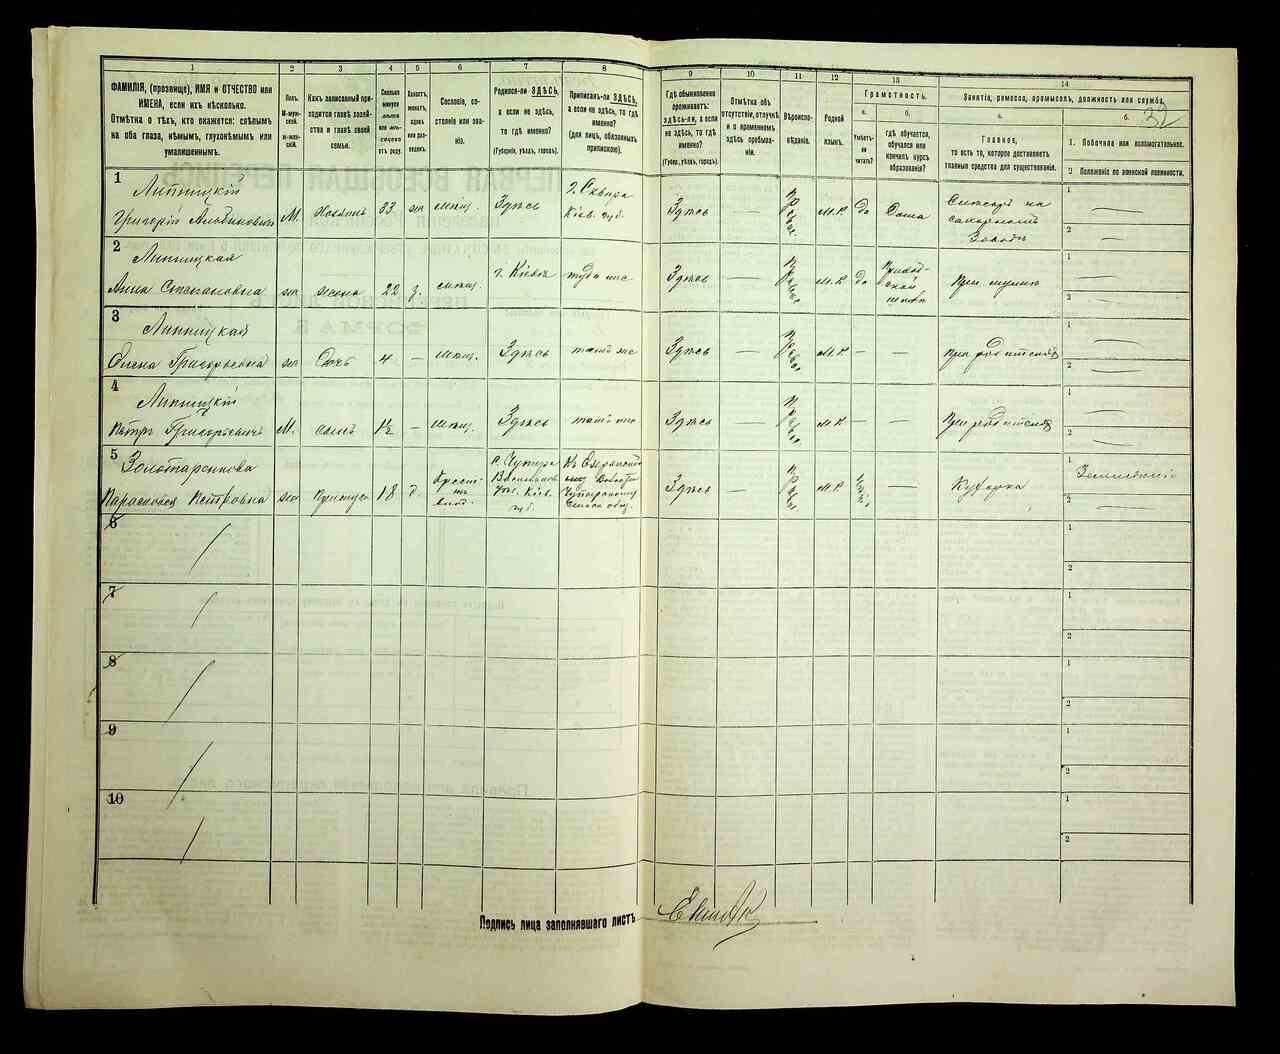 1
ФАМИЛІЯ, (прозвище), ИМЯ и ОТЧЕСТВО или
ИМЕНА, если ихъ нѣсколько.
Отмѣтка о тѣхъ, кто окажется: слѣпымъ
на оба глаза, нѣмымъ, глухонѣмымъ или
умалишеннымъ.
2
Полъ.
М-мужской.
Ж-женскій.
3
Какъ записанный приходится главѣ хозяйства и главѣ своей
семьи.
4
Сколько
минуло
лѣтъ
или мѣсяцевъ
отъ роду.
5
Холостъ,
женатъ,
вдовъ
или разведенъ.
6
Сословіе, состояніе или званіе.
7
Родился-ли ЗДѢСЬ,
а если не здѣсь,
то гдѣ именно?
(Губернія, уѣздъ, городъ).
8
Приписанъ-ли ЗДѢСЬ,
а если не здѣсь, то гдѣ
именно?
(для лицъ, обязанныхъ
припискою).
9
Гдѣ обыкновенно
проживаетъ:
здѣсь-ли, а если
не здѣсь, то гдѣ
именно?
(Губер., уѣздъ, городъ).
10
Отмѣтка объ
отсутствіи, отлучкѣ
и о временномъ
здѣсь пребываніи.
11
Вѣроисповѣданіе.
12
Родной
языкъ.
13
Грамотность.
а.
Умѣетъ-ли
читать?
б.
гдѣ обучается,
обучался или
кончилъ курсъ
образованія?
14
Занятіе, ремесло, промыселъ, должность или служба.
а.
Главное,
то есть то, которое доставляетъ
главныя средства для существованія.
б.
1. Побочное или вспомогательное.
2. Положеніе по воинской повинности.
32
1
Липницкій
Григорій Альбиновичъ
М.
Хозяинъ
33
жен
мѣщ.
Здѣсь
г. Сквира
Кіев. губ.
Здѣсь
—
Правос.
м.р.
да
Дома
Служитъ на
сахарномъ
Заводѣ
1 —
2 —
2
Липницкая
Анна Степановна
ж
жена
22
з.
мѣщ.
г. Кіевъ
тамъ же
Здѣсь
—
Правос.
м.р.
да
Приходской
школѣ
При мужѣ
1 —
2 —
3
Липницкая
Елена Григорьевна
ж
Дочь
4
—
мѣщ.
Здѣсь
тамъ же
Здѣсь
—
Правос.
м.р.
—
—
При родителяхъ
1 —
2 —
4
Липницкій
Петръ Григорьевичъ
М.
сынъ
1½
—
мѣщ.
Здѣсь
тамъ же
Здѣсь
—
Правос.
м.р.
—
—
При родителяхъ
1 —
2 —
5
Золотаренкова
Параскевія Петровна
ж
Прислуга
18
д.
Здѣсь
—
м.р.
—
Кухарка
1
2 —
6
1
2
7
1
2
8
1
2
9
1
2
10
1
2
Подпись лица заполнявшаго листъ